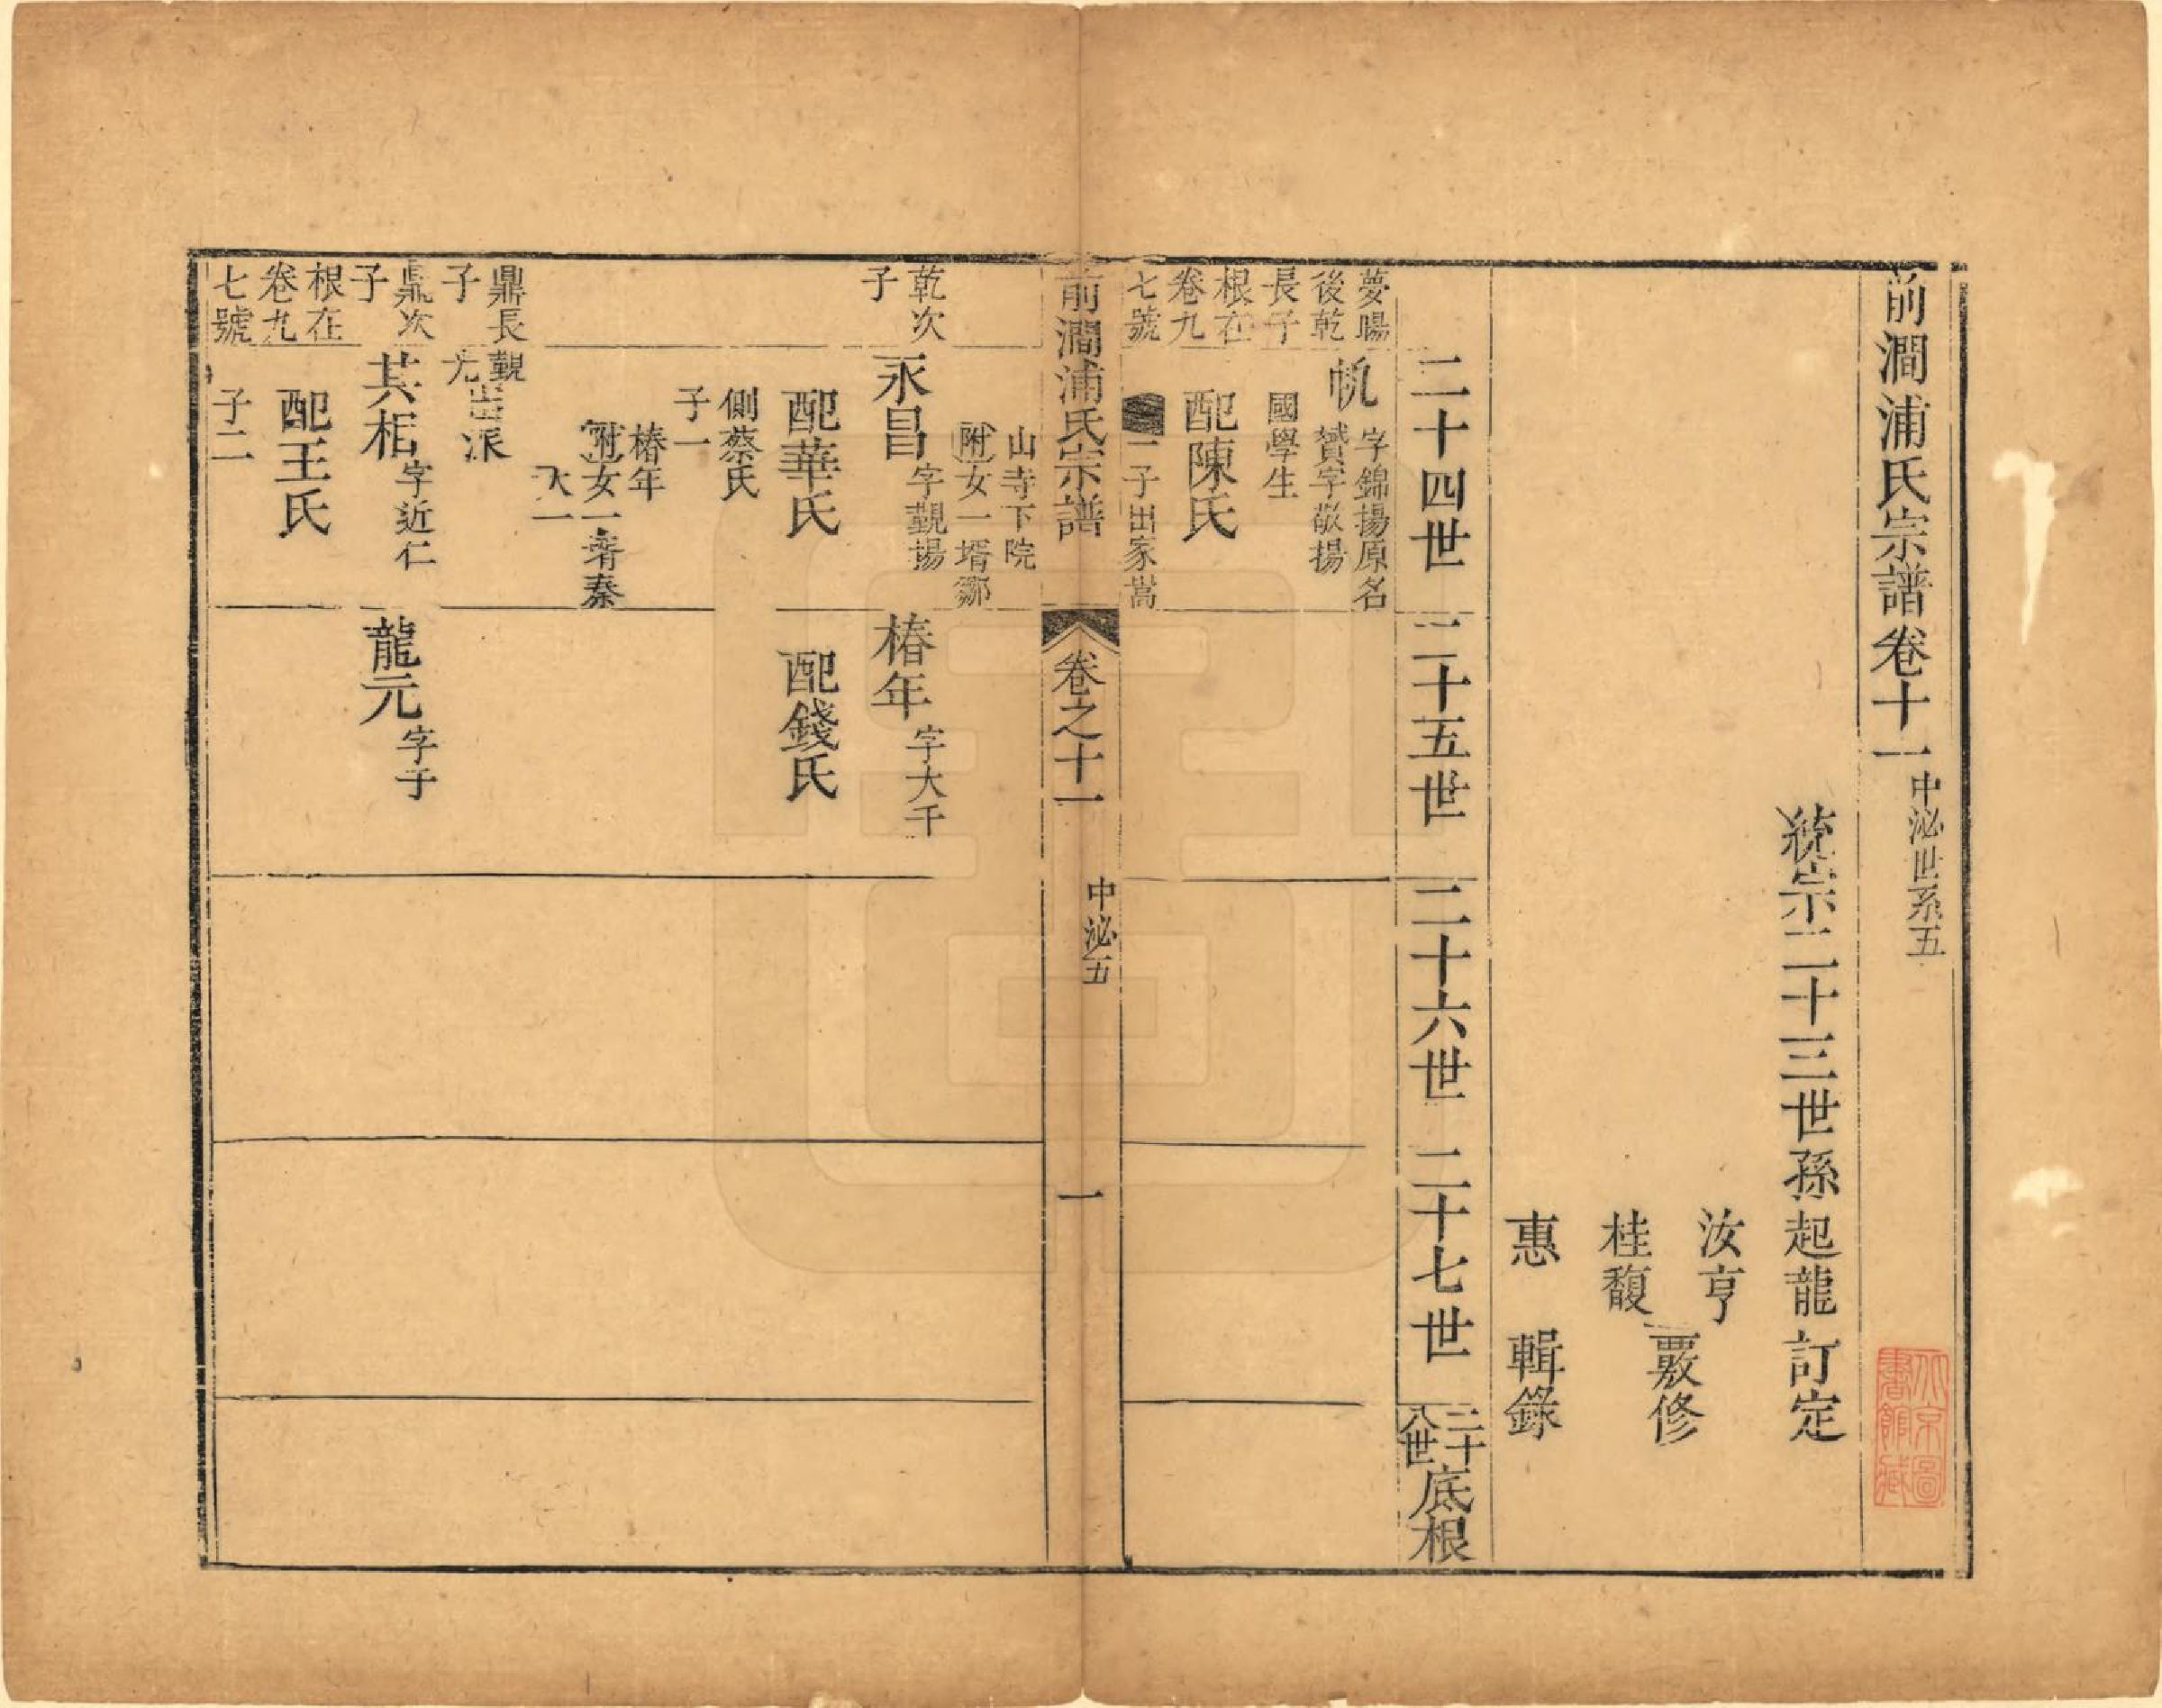 前澗浦氏宗譜卷十一 中泌世系五
統宗二十三世孫起龍訂定
汝亨
桂馥
覈修
惠 輯錄
二十四世 二十五世 二十六世 二十七世 二十八世 底根
夢暘
後乾
長子
根在
卷九
七號
帆 字錦揚原名
贇字敬揚
國學生
配陳氏
一子出家嵩
山寺下院
附女一壻鄒
前澗浦氏宗譜 卷之十一 中泌五 一
乾次
子
永昌 字觀揚
配華氏
側蔡氏
子一
椿年
附女一壻秦
大一
椿年 字大千
配錢氏
鼎長
子
觀
光
出
派
鼎次
子
根在
卷九
七號
其相 字近仁
配王氏
子二
龍元 字于
北京圖
書館藏